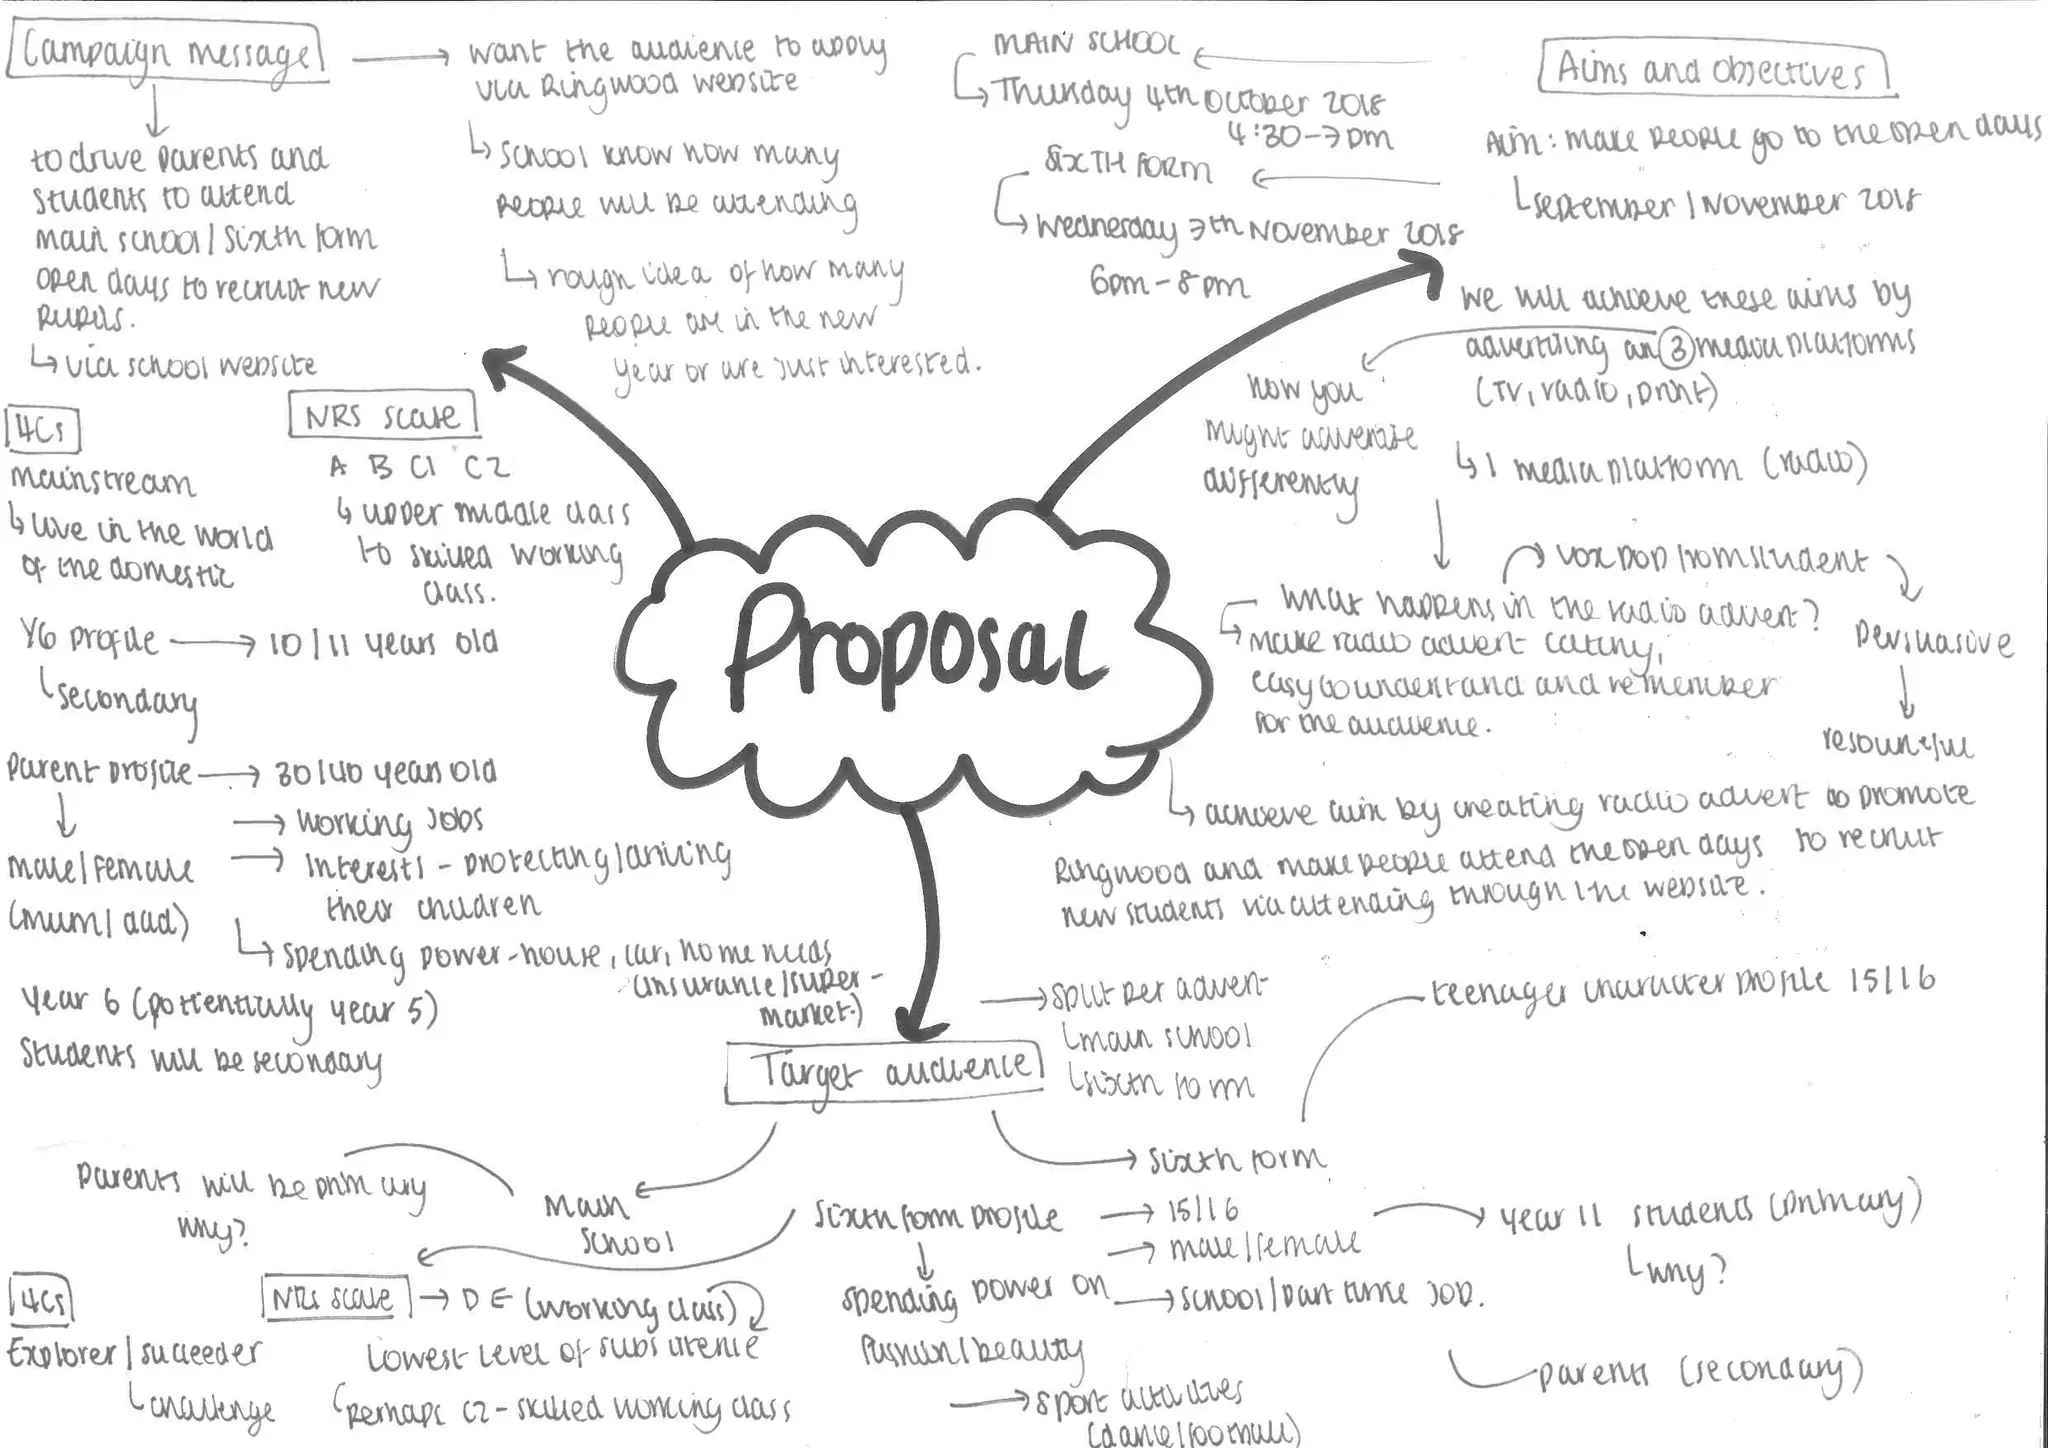 Campaign message
want the audience to apply
via Ringwood website
↳ school know how many
people will be attending
↳ rough idea of how many
people are in the new
year or are just interested.
to drive parents and
students to attend
main school/sixth form
open days to recruit new
pupils.
↳ via school website
MAIN SCHOOL
↳ Thursday 4th October 2018
4:30-7pm
SIXTH FORM
↳ Wednesday 7th November 2018
6pm-8pm
Aims and objectives
Aim: make people go to the open days
↳ September/November 2018
We will achieve these aims by
advertising on 3 media platforms
(TV, radio, print)
how you
might advertise
differently
↳ 1 media platform (radio)
vox pop from student
persuasive
resourceful
What happens in the radio advert?
↳ make radio advert catchy,
easy to understand and remember
for the audience.
↳ achieve aim by creating radio advert to promote
Ringwood and make people attend the open days to recruit
new students via attending through the website.
4Cs
mainstream
↳ live in the world
of the domestic
NRS scale
A B C1 C2
↳ upper middle class
to skilled working
class.
Proposal
Y6 profile → 10/11 years old
↳ secondary
Parent profile → 30/40 years old
→ working jobs
→ Interests - protecting/driving
their children
male/female
(mum/dad)
↳ spending power - house, car, home needs
(insurance/super-
market.)
Year 6 (potentially year 5)
students will be secondary
Target audience
→ split per advert
↳ main school
↳ sixth form
teenager character profile 15/16
Parents will be primary
why?
Main
school
→ sixth form
Sixth form profile
→ 15/16
→ male/female
→ school/part time job.
year 11 students (primary)
↳ why?
parents (secondary)
spending power on
fashion/beauty
→ sport activities
(dance/football)
4Cs
Explorer/succeeder
↳ challenge
NRS scale → D E (working class)
Lowest level of subsistence
↳ perhaps C2 - skilled working class